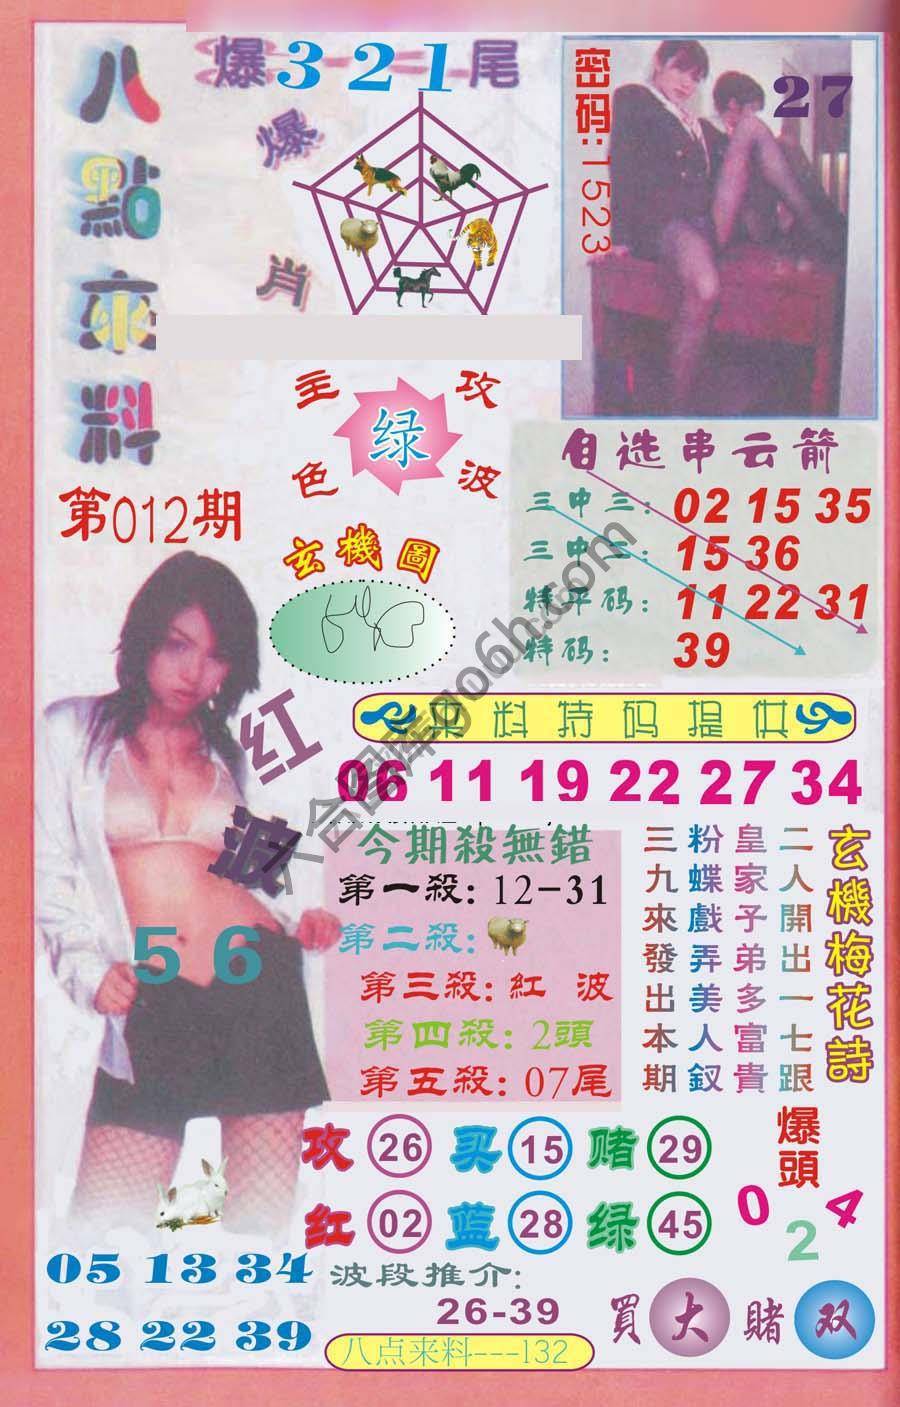 八點來料
爆321尾
爆肖
密码:1523
27
主攻
绿
色波
第012期
玄機圖
自选串云箭
三中三: 02 15 35
三中二: 15 36
特平码: 11 22 31
特码: 39
红波
56
来料特码提供
06 11 19 22 27 34
今期殺無錯
第一殺: 12-31
第二殺:
第三殺: 紅 波
第四殺: 2頭
第五殺: 07尾
玄機梅花詩
二人開出一七跟
皇家子弟多富貴
粉蝶戲弄美人釵
三九來發出本期
攻 26 买 15 赌 29
红 02 蓝 28 绿 45
爆頭
0 2 4
05 13 34
28 22 39
波段推介:
26-39
買大 賭双
八点来料---132
六合图库go6h.com